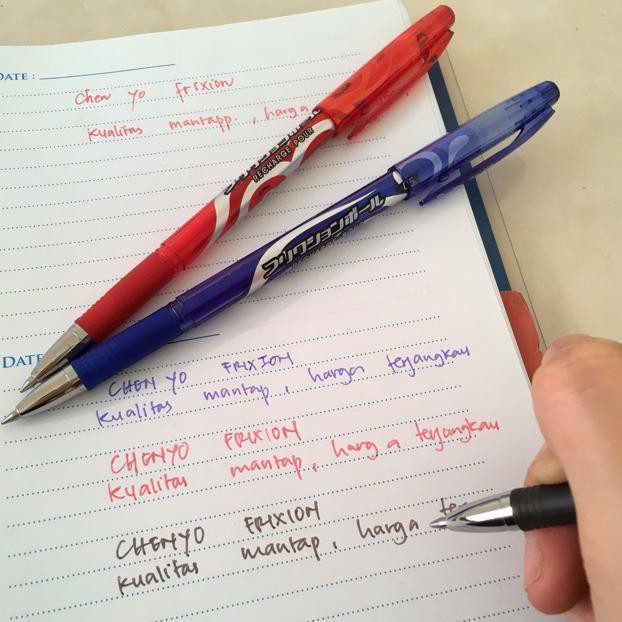 DATE :
Chen yo frixion
kualitas mantapp, harga
RECHARGE POUR
フリクションボール
0.5
DATE
CHEN YO FRIXION
kualitas mantap, harga terjangkau
CHENYO FRIXION
kualitas mantap, harga terjangkau
CHENYO FRIXION
kualitas mantap, harga ter